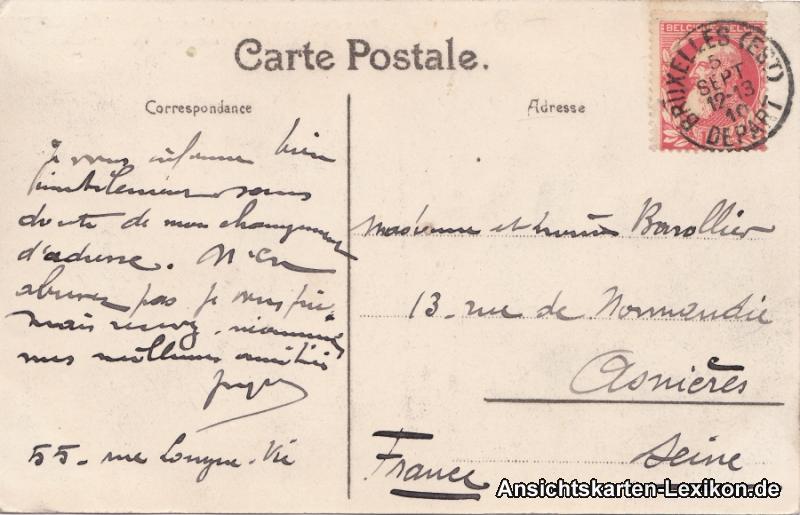 Carte Postale.
BELGIQUE BELGIË
BRUXELLES (EST)
5
SEPT
12-13
10
DEPART
Correspondance
Adresse
Je vous informe bien
inutilement sans
doute de mon changement
d'adresse. N'en
abusez pas je vous prie
mais recevez néanmoins
mes meilleures amitiés
55 - rue Longue-Vie
Madame et Barollier
13 - rue de Normandie
Asnières
Seine
France
Ansichtskarten-Lexikon.de